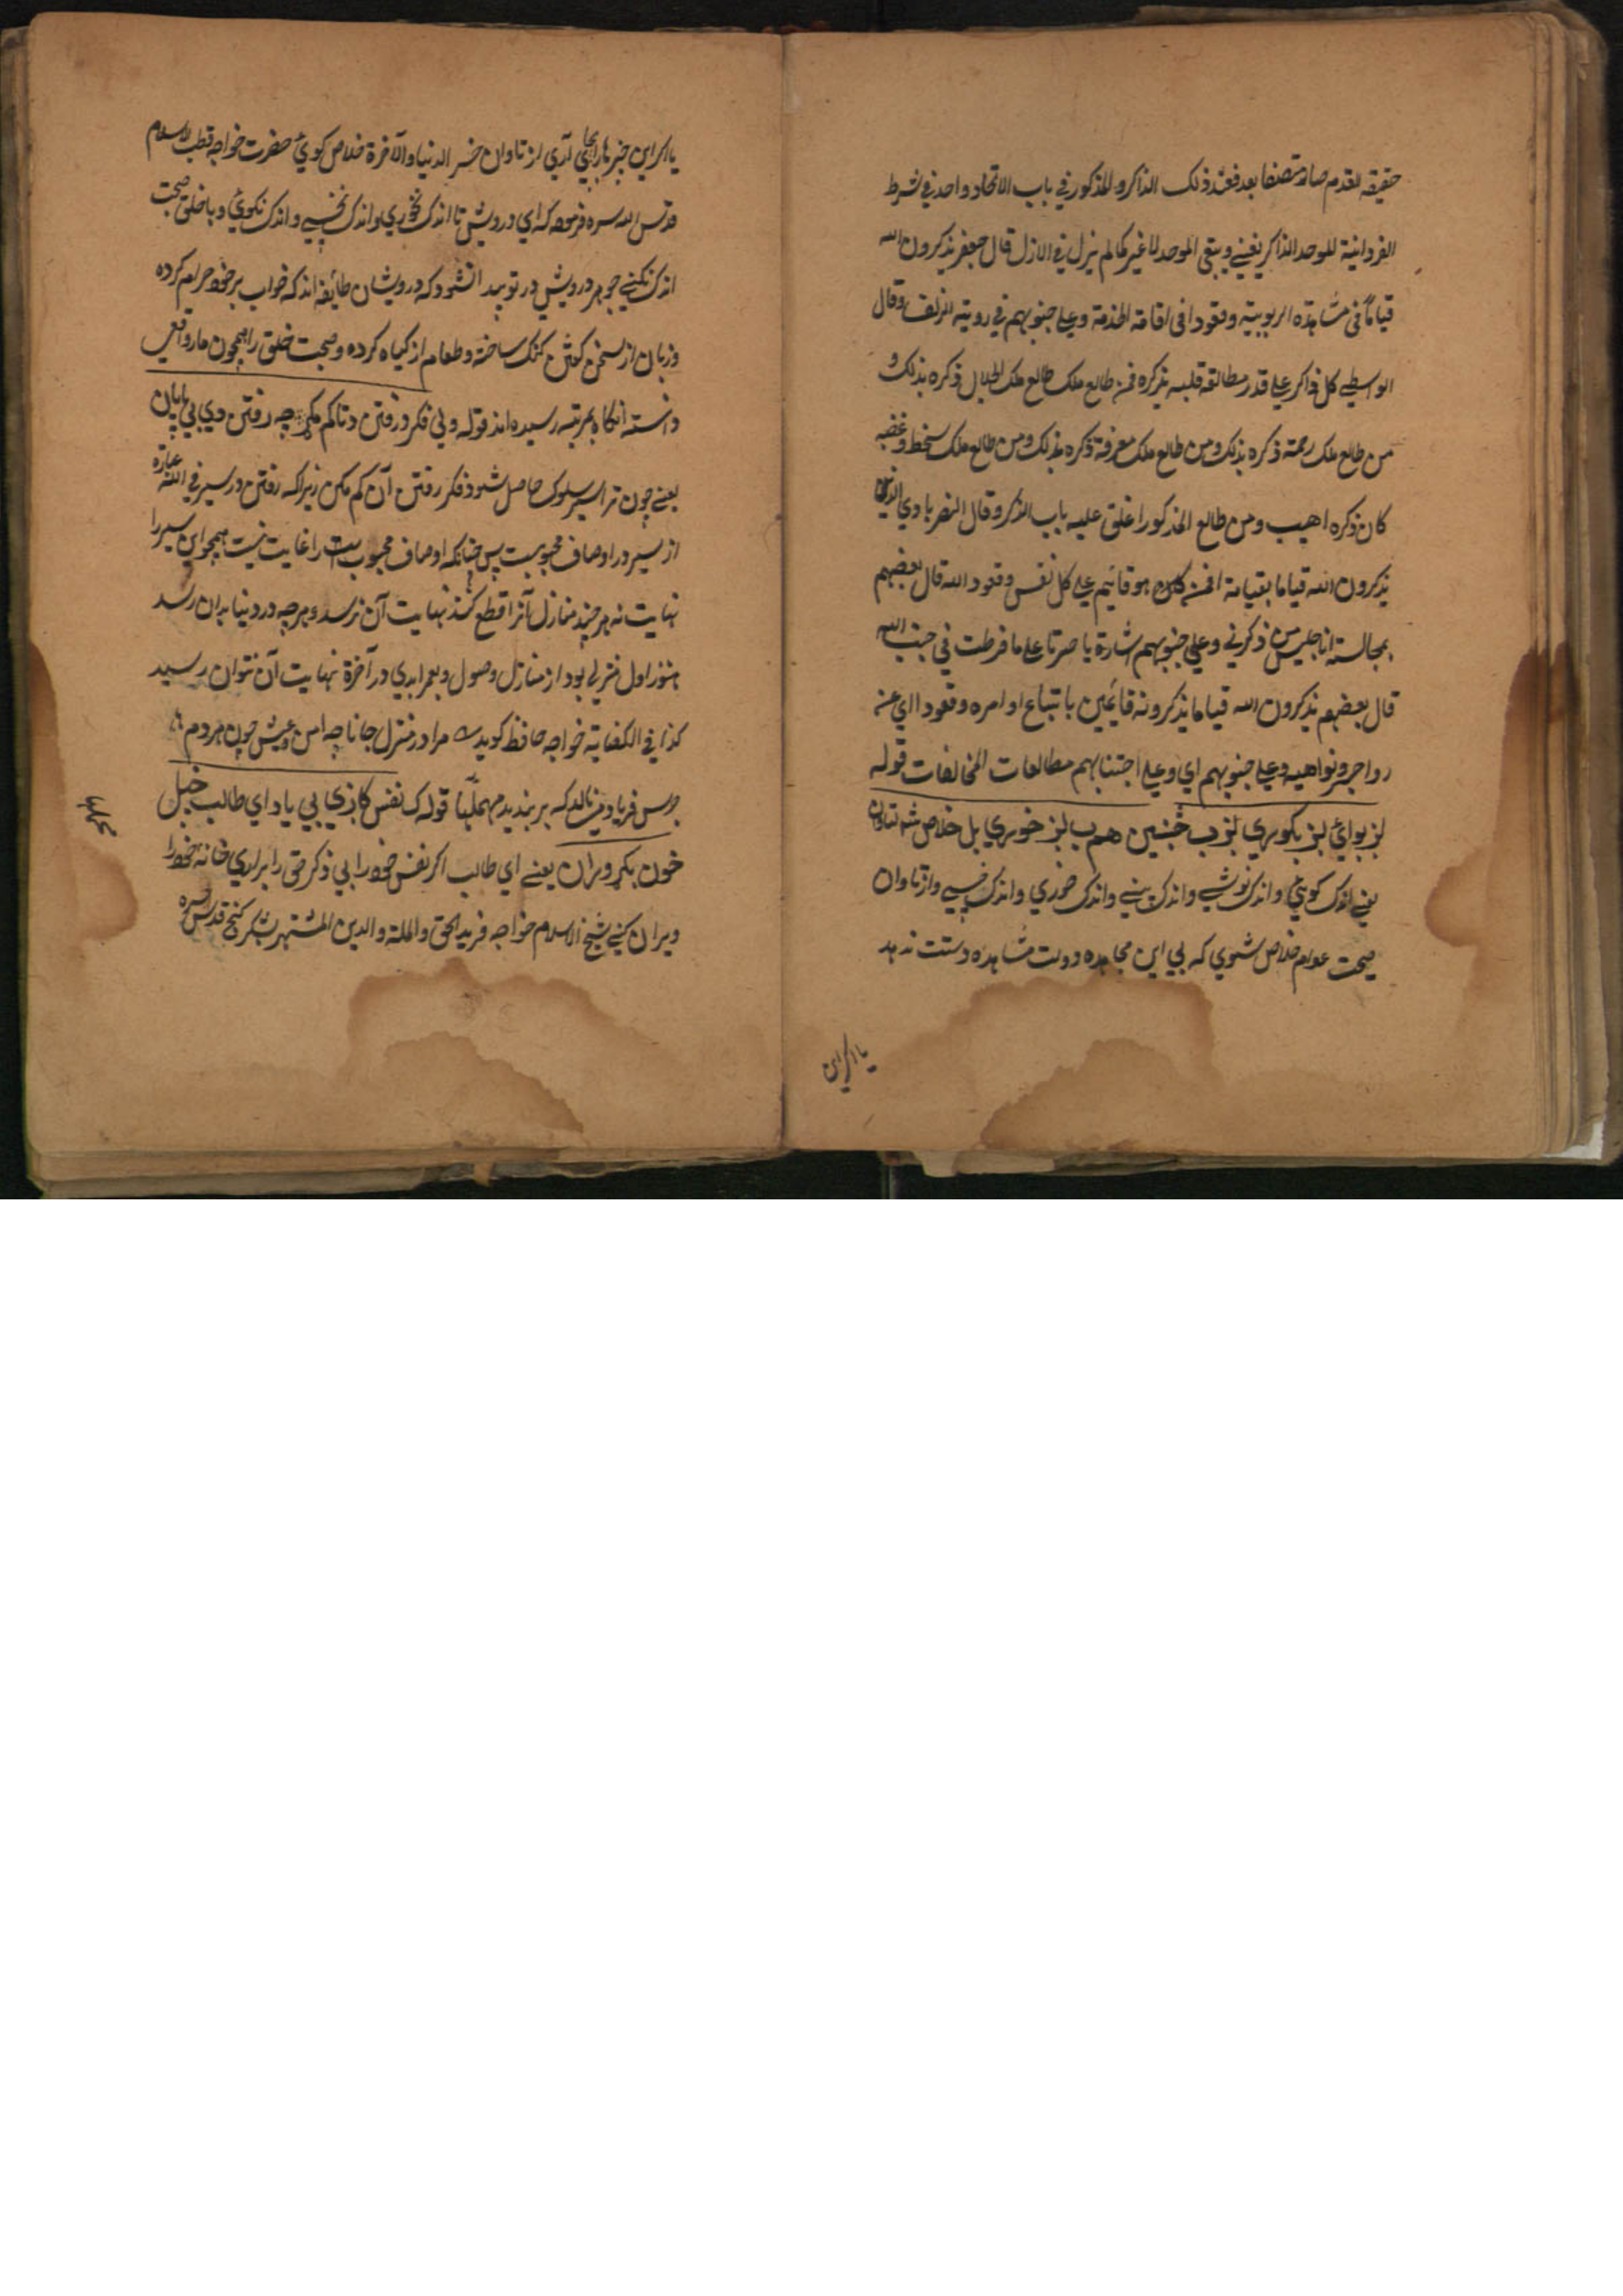 حقيقة لقدم صار متصفا بعد فعند ذلک الذاکر و المذکور في باب الاتحاد واحد في شرط
الفردانية للموحد الذاکر يفني و يبقي الموحد لا غير کما لم يزل في الازل قال جعفر يذکرون الله
قياماً في مشاهدة الربوبية وقعودا في اقامة الخدمة وعلي جنوبهم في روية الزلف وقال
الواسطي کل ذاکر علي قدر مطالعة قلبه يذکره فمن طالع ملک طالع ملک الجلال ذکره بذلک و
من طالع ملک رحمة ذکره بذلک ومن طالع ملک معرفة ذکره بذلک ومن طالع ملک سخط وغضبه
کان ذکره اهيب ومن طالع المذکور اغلق عليه باب الذکر وقال النصربادي الذين
يذکرون الله قياما بقيامة هو قايم علي کل نفس وقعود الله قال بعضهم
بمجالسته انا جليس من ذکرني وعلي جنوبهم اشارة يا حسرتا علي ما فرطت في جنب الله
قال بعضهم يذکرون الله قياما يذکرونه قايمين باتباع اوامره وقعودا اي عن
زواجره ونواهيه وعلي جنوبهم اي وعلي اجتنابهم مطالعات المخالفات قوله
لږ بوائ لږ بکوري لږ ب خنبين هم ب لږ خوري بل خلاص شه لتاوان
يعني اندک کويي و اندک نوشي و اندک بيني و اندک خوري و اندک خسپي و از تاوان
صحبت عوام خلاص شوي که بي اين مجاهده دولت مشاهده دست ندهد
يا اکر اين
يا اکر اين چيزها را بجاي آري از تاوان خسر الدنيا والآخرة خلاص کوي حضرت خواجه قطب الاسلام
قدس الله سره فرموده که اي درويش تا اندک نخوري و اندک نخسپي و اندک نکوي و با خلق صحبت
اندک نکني جوهر درويشي در تو پيدا نشود که درويشان طايفه اند که خواب بر خود حرام کرده
و زبان از سخن کفتن کنک ساخته و طعام از کياه کرده و صحبت خلق را همچون مار و افعي
دانسته انکاه بمرتبه رسيده اند قوله و بي فکر و رفتن دتا کم مکړه چه رفتن دي بي پايان
يعني چون ترا سير سلوک حاصل شود فکر رفتن آن کم مکن زيرا که رفتن و سير في الله عبارة
از سير در اوصاف محبوبست پس چنانکه اوصاف محبوب را غايت نيست همچو اين سير را
نهايت نه هر چند منازل آنرا قطع کند نهايت آن نرسد و هر چه در دنيا بدان رسد
هنوز اول منزلي بود از منازل وصول و بعمر ابدي در آخرة نهايت آن نتوان رسيد
کذا في الکفاية خواجه حافظ کويد مرا در منزل جانا چه امن و عيش چون هر دم
جرس فرياد مينالد که بر بنديد محملها قوله ک نفس کاږي بي ياد اي طالب خپل
خون بکړ ويران يعني اي طالب اکر نفس خود را بي ذکر حق را براري خانه خود را
ويران کني شيخ الاسلام خواجه فريد الحق والملة والدين المشتهر شکر کنج قدس سره